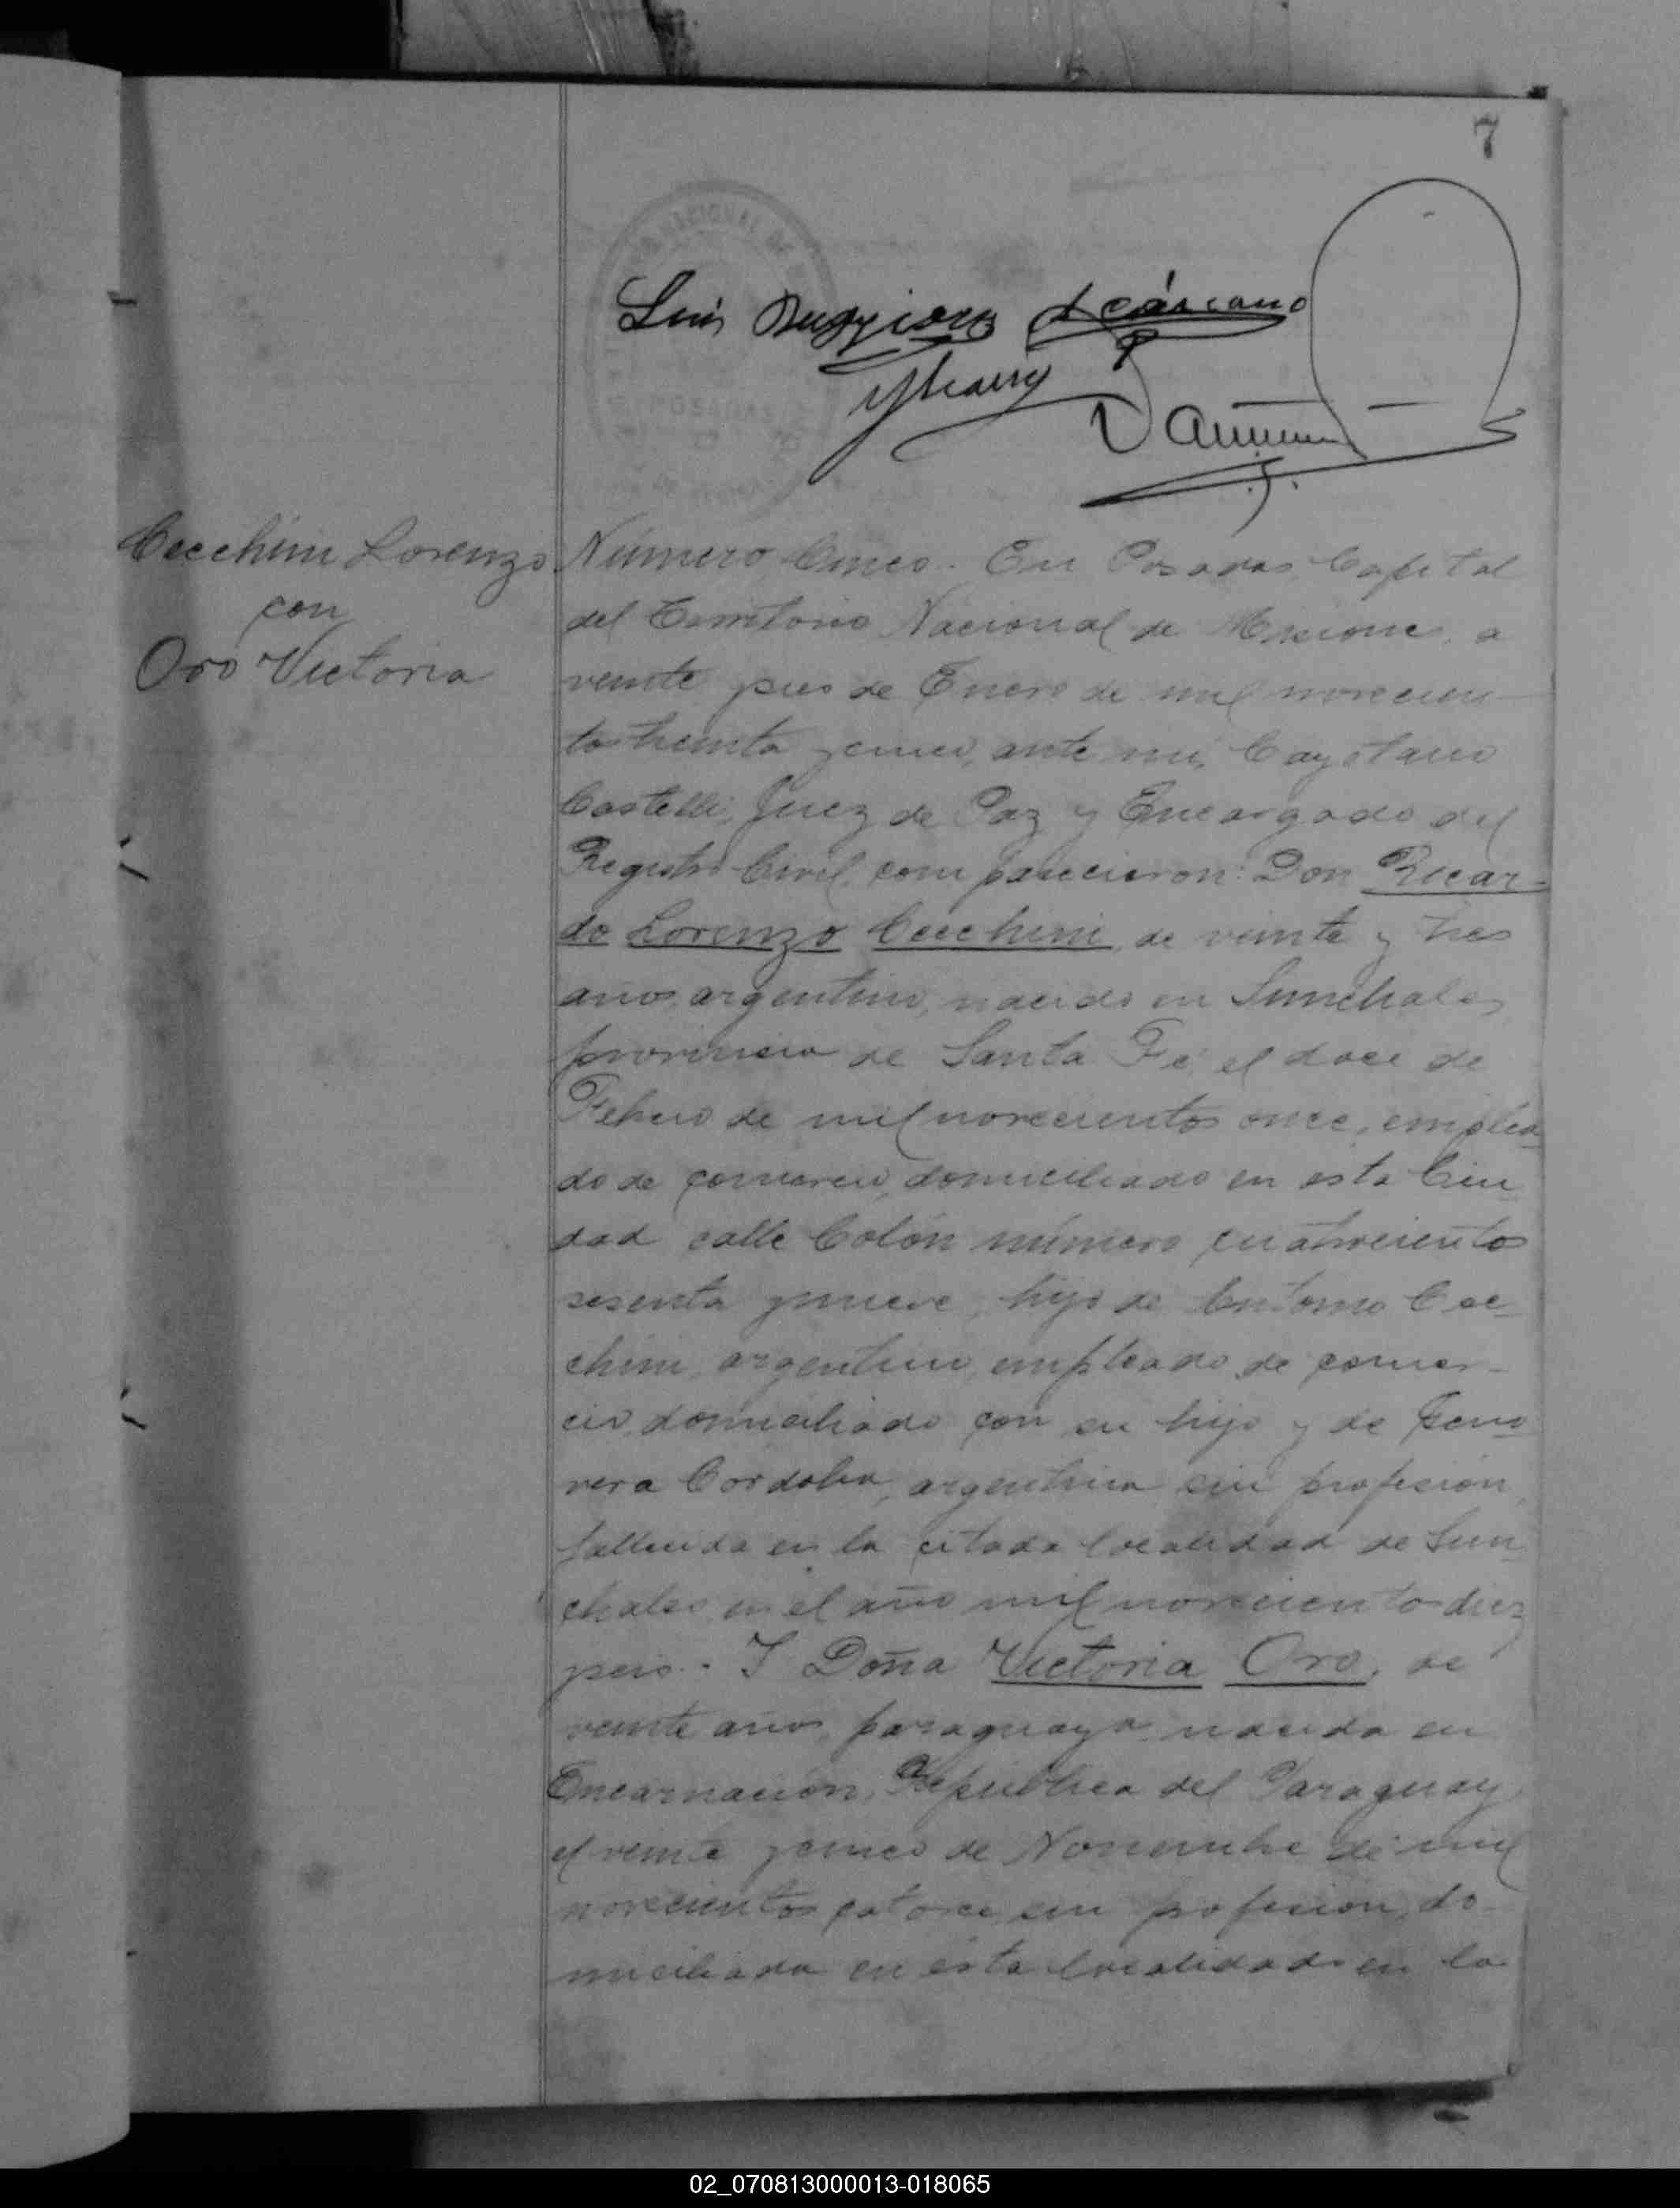 7
NACIONAL DE
POSADAS
Luis
Cecchini Lorenzo
con
Oro Victoria
Número Cinco. En Posadas Capital
del Territorio Nacional de Misiones, a
veinte y seis de Enero de mil novecien-
tos treinta y cinco, ante mi, Cayetano
Castelli, Juez de Paz y Encargado del
Registro Civil, comparecieron: Don Ricar-
do Lorenzo Cecchini, de veinte y tres
años, argentino, nacido en Sunchales
provincia de Santa Fé el doce de
Febrero de mil novecientos once, emplea-
do de comercio, domiciliado en esta Ciu
dad calle Colón número cuatrocientos
sesenta y nueve, hijo de Antonio Cec-
chini, argentino, empleado de comer-
cio, domiciliado con su hijo y de Geno
vera Cordoba, argentina sin profesion,
fallecida en la citada localidad de Sun
chales en el año mil novecientos diez
y seis. Y Doña Victoria Oro, de
veinte años, paraguaya, nacida en
Encarnación, República del Paraguay
el veinte y cinco de Noviembre de mil
novecientos catorce, sin profesion, do-
miciliada en esta localidad en la